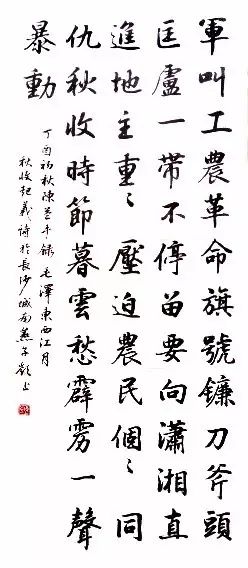 軍叫工農革命旗號鐮刀斧頭
匡廬一帶不停留要向瀟湘直
進地主重〻壓迫農民個〻同
仇秋收時節暮雲愁霹雳一聲
暴動
丁酉初秋陳 錄毛澤東西江月
秋收起義詩於長沙城南燕子嶺上